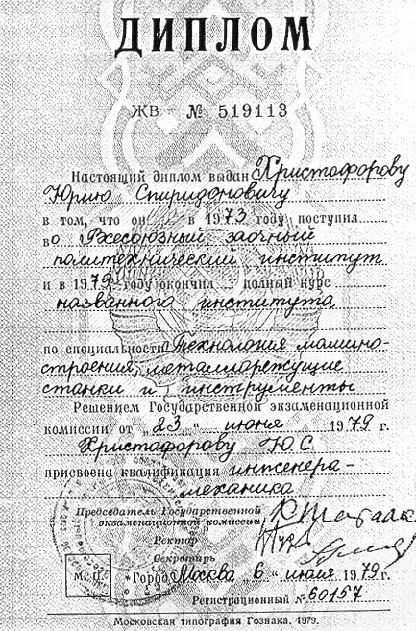 ДИПЛОМ
ЖВ № 519113
Настоящий диплом выдан Христофорову
Юрию Спиридоновичу
в том, что он в 1973 году поступил
во Всесоюзный заочный
политехнический институт
и в 1979 году окончил полный курс
названного института
по специальности Технология машино-
строения, металлорежущие
станки и инструменты
Решением Государственной экзаменационной
комиссии от „23“ июня 1979 г.
Христофорову Ю С
присвоена квалификация инженера-
механика
Председатель Государственной
экзаменационной комиссии
Ректор
Секретарь
М. П. Город Москва „6“ июля 1979 г.
Регистрационный № 60157
Московская типография Гознака. 1979.